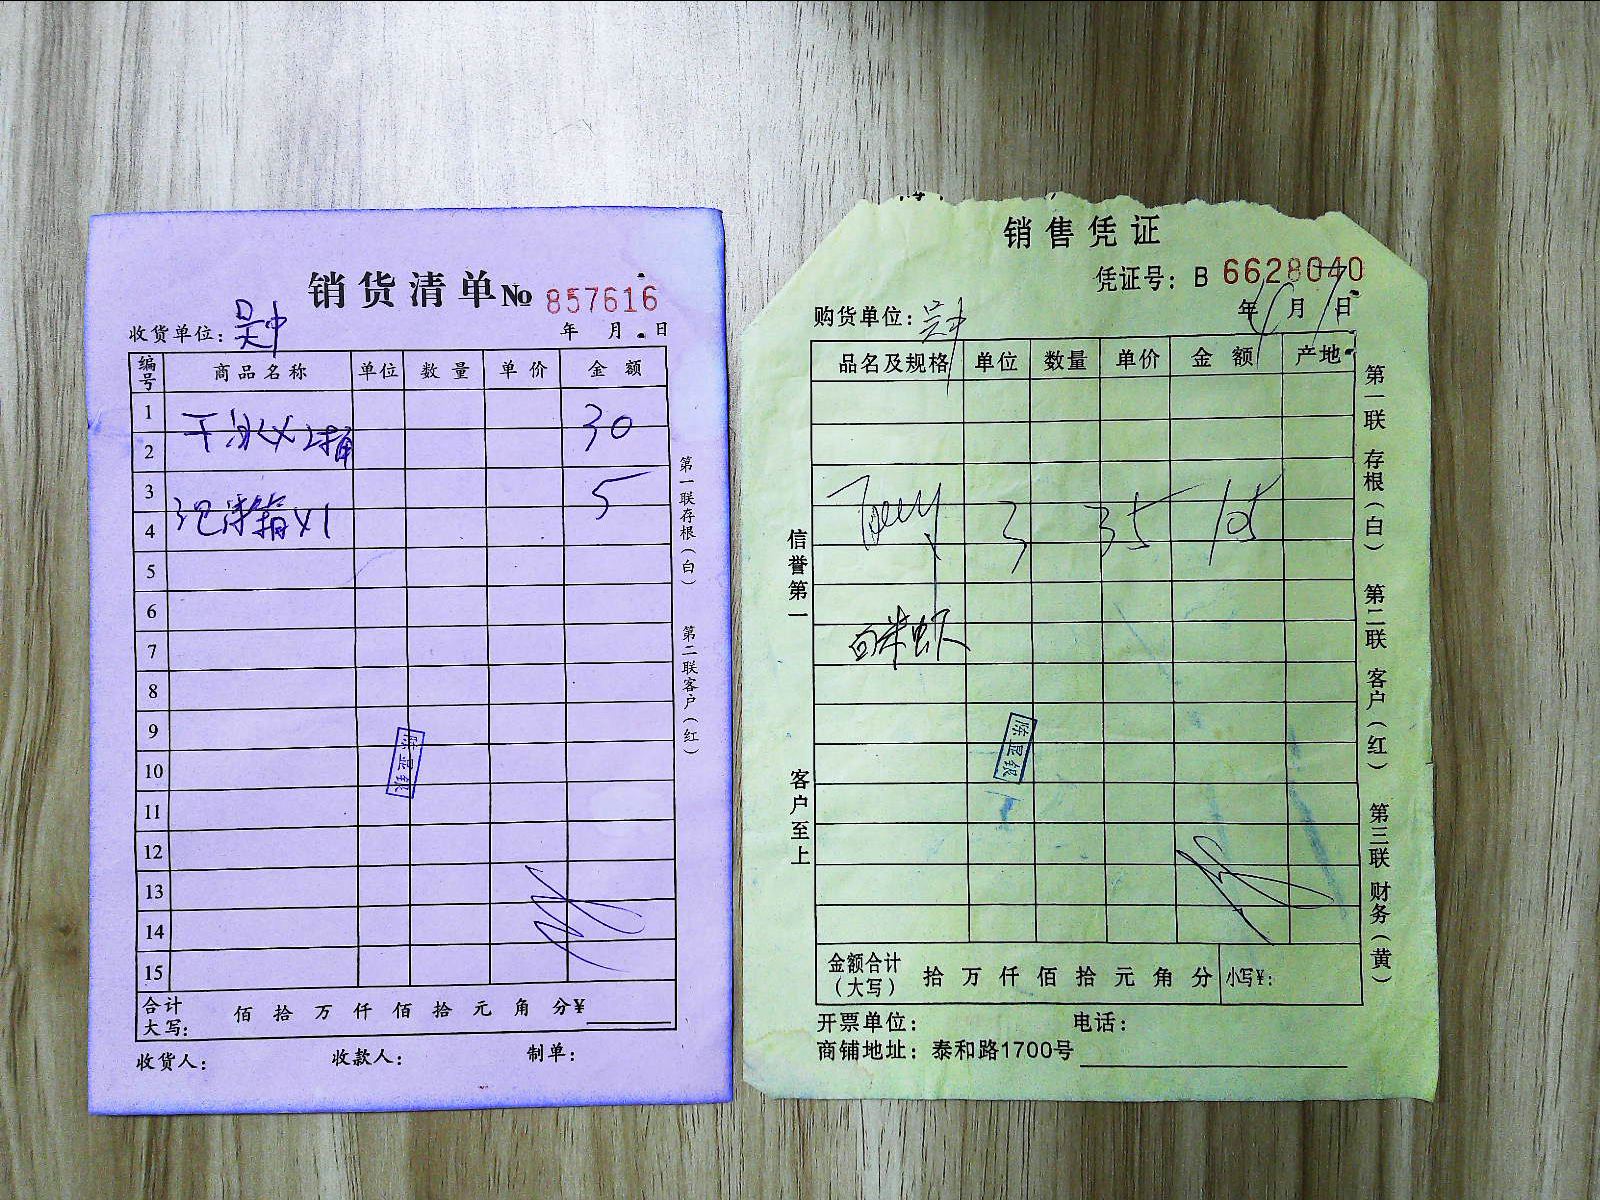 销货清单 № 857616
收货单位: 吴中 年 月 日
编号 商品名称 单位 数量 单价 金额
1
干冰×2桶 30
2
3
泡沫箱×1 5
4
5
6
7
8
9
10
11
12
13
14
15
陈显银
合计大写: 佰拾万仟佰拾元角分¥
收货人: 收款人: 制单:
第一联存根(白) 第二联客户(红)
销售凭证
凭证号: B 6628040
购货单位: 吴中 年 月 7 日
品名及规格 单位 数量 单价 金额 产地
3 35 105
白米虾
陈显银
金额合计(大写) 拾万仟佰拾元角分 小写¥:
开票单位: 电话:
商铺地址: 泰和路1700号
信誉第一 客户至上
第一联 存根(白) 第二联 客户(红) 第三联 财务(黄)